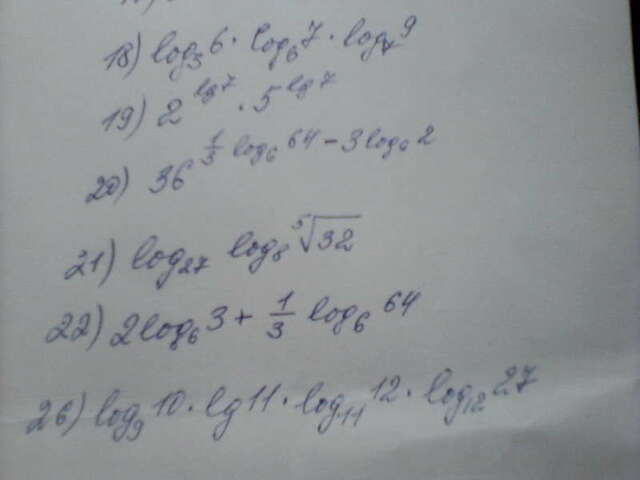 18) log₃6 · log₆7 · log₇9
19) 2^(lg7) · 5^(lg7)
20) 36^(1/3 log₆64 - 3log₆2)
21) log₂₇ log₈ ⁵√32
22) 2log₆3 + 1/3 log₆64
26) log₉10 · lg11 · log₁₁12 · log₁₂27